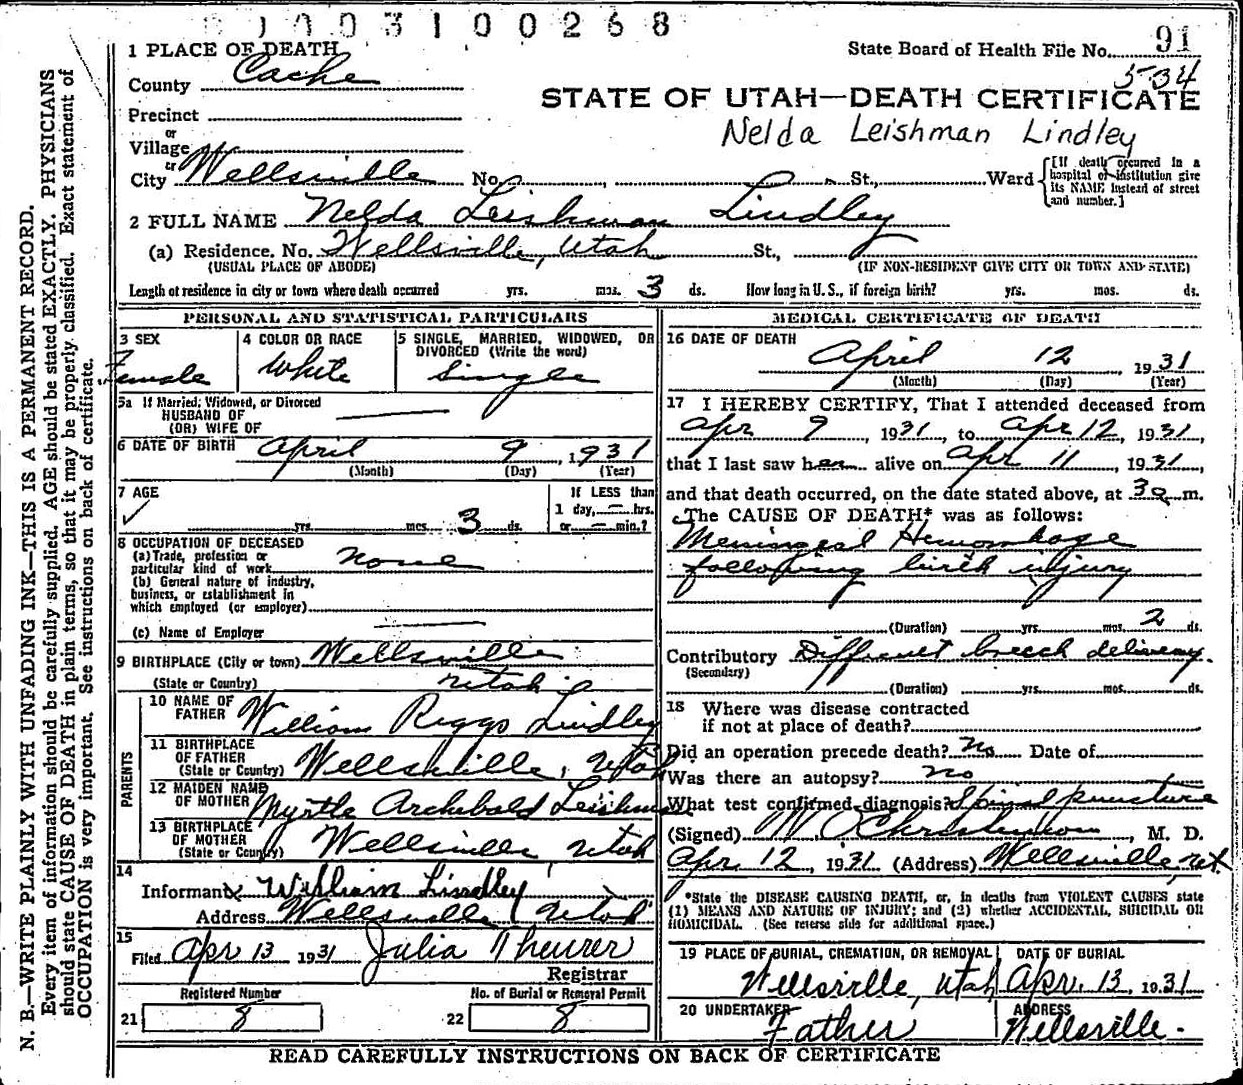 1003100268
1 PLACE OF DEATH
State Board of Health File No. 91
County Cache
534
STATE OF UTAH—DEATH CERTIFICATE
Precinct
or
Nelda Leishman Lindley
Village
or
City Wellsville No. , St., Ward
[If death occurred in a hospital or institution give its NAME instead of street and number.]
2 FULL NAME Nelda Leishman Lindley
(a) Residence. No. Wellsville, Utah St.,
(USUAL PLACE OF ABODE) (IF NON-RESIDENT GIVE CITY OR TOWN AND STATE)
Length of residence in city or town where death occurred yrs. mos. 3 ds. How long in U. S., if foreign birth? yrs. mos. ds.
PERSONAL AND STATISTICAL PARTICULARS
3 SEX
Female
4 COLOR OR RACE
White
5 SINGLE, MARRIED, WIDOWED, OR
DIVORCED (Write the word)
Single
5a If Married, Widowed, or Divorced
HUSBAND OF
(OR) WIFE OF
6 DATE OF BIRTH April 9, 1931
(Month) (Day) (Year)
7 AGE
yrs. mos. 3 ds.
If LESS than
1 day, — hrs.
or — min.?
8 OCCUPATION OF DECEASED
(a) Trade, profession or
particular kind of work None
(b) General nature of industry,
business, or establishment in
which employed (or employer)
(c) Name of Employer
9 BIRTHPLACE (City or town) Wellsville
(State or Country) Utah
PARENTS
10 NAME OF
FATHER William Riggs Lindley
11 BIRTHPLACE
OF FATHER
(State or Country) Wellsville, Utah
12 MAIDEN NAME
OF MOTHER Myrtle Archibald Leishman
13 BIRTHPLACE
OF MOTHER
(State or Country) Wellsville Utah
14
Informant William Lindley
Address Wellsville Utah
15
Filed Apr 13 1931 Julia Theurer
Registrar
Registered Number
21 8
No. of Burial or Removal Permit
22 8
MEDICAL CERTIFICATE OF DEATH
16 DATE OF DEATH
April 12, 1931
(Month) (Day) (Year)
17 I HEREBY CERTIFY, That I attended deceased from
Apr 9, 1931, to Apr 12, 1931,
that I last saw her alive on Apr 11, 1931,
and that death occurred, on the date stated above, at 3 a m.
The CAUSE OF DEATH* was as follows:
Meningeal Hemorrhage
following birth injury
(Duration) yrs. mos. 2 ds.
Contributory Difficult breech delivery.
(Secondary)
(Duration) yrs. mos. ds.
18 Where was disease contracted
if not at place of death?
Did an operation precede death? No Date of
Was there an autopsy? no
What test confirmed diagnosis? Spinal puncture
(Signed) W O Christenson, M. D.
Apr 12, 1931 (Address) Wellsville, Ut.
*State the DISEASE CAUSING DEATH, or, in deaths from VIOLENT CAUSES state
(1) MEANS AND NATURE OF INJURY; and (2) whether ACCIDENTAL, SUICIDAL OR
HOMICIDAL. (See reverse side for additional space.)
19 PLACE OF BURIAL, CREMATION, OR REMOVAL
Wellsville, Utah
DATE OF BURIAL
Apr. 13, 1931
20 UNDERTAKER
Father
ADDRESS
Wellsville.
READ CAREFULLY INSTRUCTIONS ON BACK OF CERTIFICATE
N. B.—WRITE PLAINLY WITH UNFADING INK—THIS IS A PERMANENT RECORD.
Every item of information should be carefully supplied. AGE should be stated EXACTLY. PHYSICIANS
should state CAUSE OF DEATH in plain terms, so that it may be properly classified. Exact statement of
OCCUPATION is very important. See instructions on back of certificate.